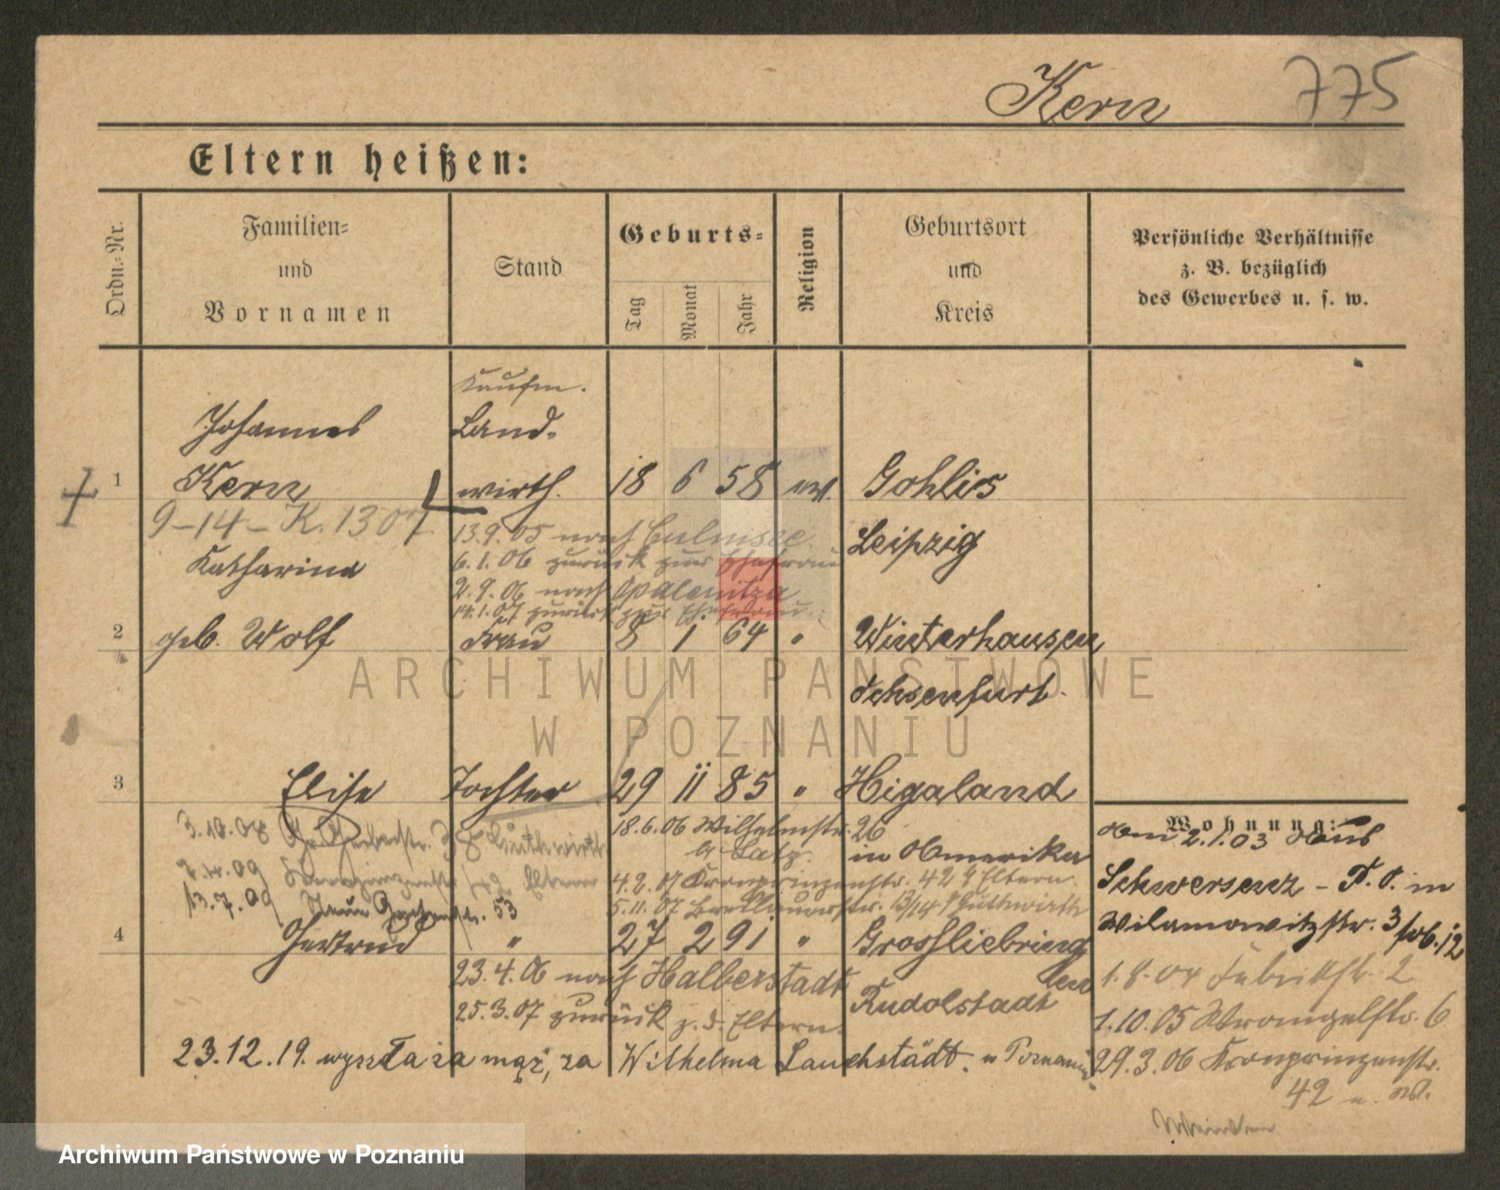 Kern
775
Eltern heißen:
Ordn.-Nr.
Familien-
und
Vornamen
Stand
Geburts-
Tag
Monat
Jahr
Religion
Geburtsort
und
Kreis
Persönliche Verhältnisse
z. B. bezüglich
des Gewerbes u. s. w.
Kaufm.
Johannes Land-
1 Kern wirth. 18 6 58 ev. Gohlis
9-14- K. 1307
13.9.05 nach Culmsee. Leipzig
6.1.06 zurück zur Ehefrau
Katharina
2.9.06 nach Opalenitza
14.1.07 zurück zur Ehefrau.
2 geb. Wolf Frau 8 1 64 " Winterhausen
Ochsenfurt.
ARCHIWUM PAŃSTWOWE
W POZNANIU
3 Elise Tochter 29 11 85 " Higaland
in Amerika
3.10.08
18.6.06 Wilhelmstr. 26
4.2.07 Kronprinzenstr. 42 Eltern
13.7.09 Neue Gartenstr. 53
5.11.07 Breslauerstr. 13/14
4 Gertrud " 27 2 91 " Grossliebringen
Rudolstadt
23.4.06 nach Halberstadt
25.3.07 zurück z. d. Eltern.
23.12.19. wyszła za mąż, za Wilhelma Lauchstädt. w Poznaniu
Wohnung:
2.1.03 aus
Schwersenz - P. O. in
Wilamowitzstr. 3
1.8.04 Fabrikstr. 2
1.10.05 Wrangelstr. 6
29.3.06 Kronprinzenstr.
42
Archiwum Państwowe w Poznaniu